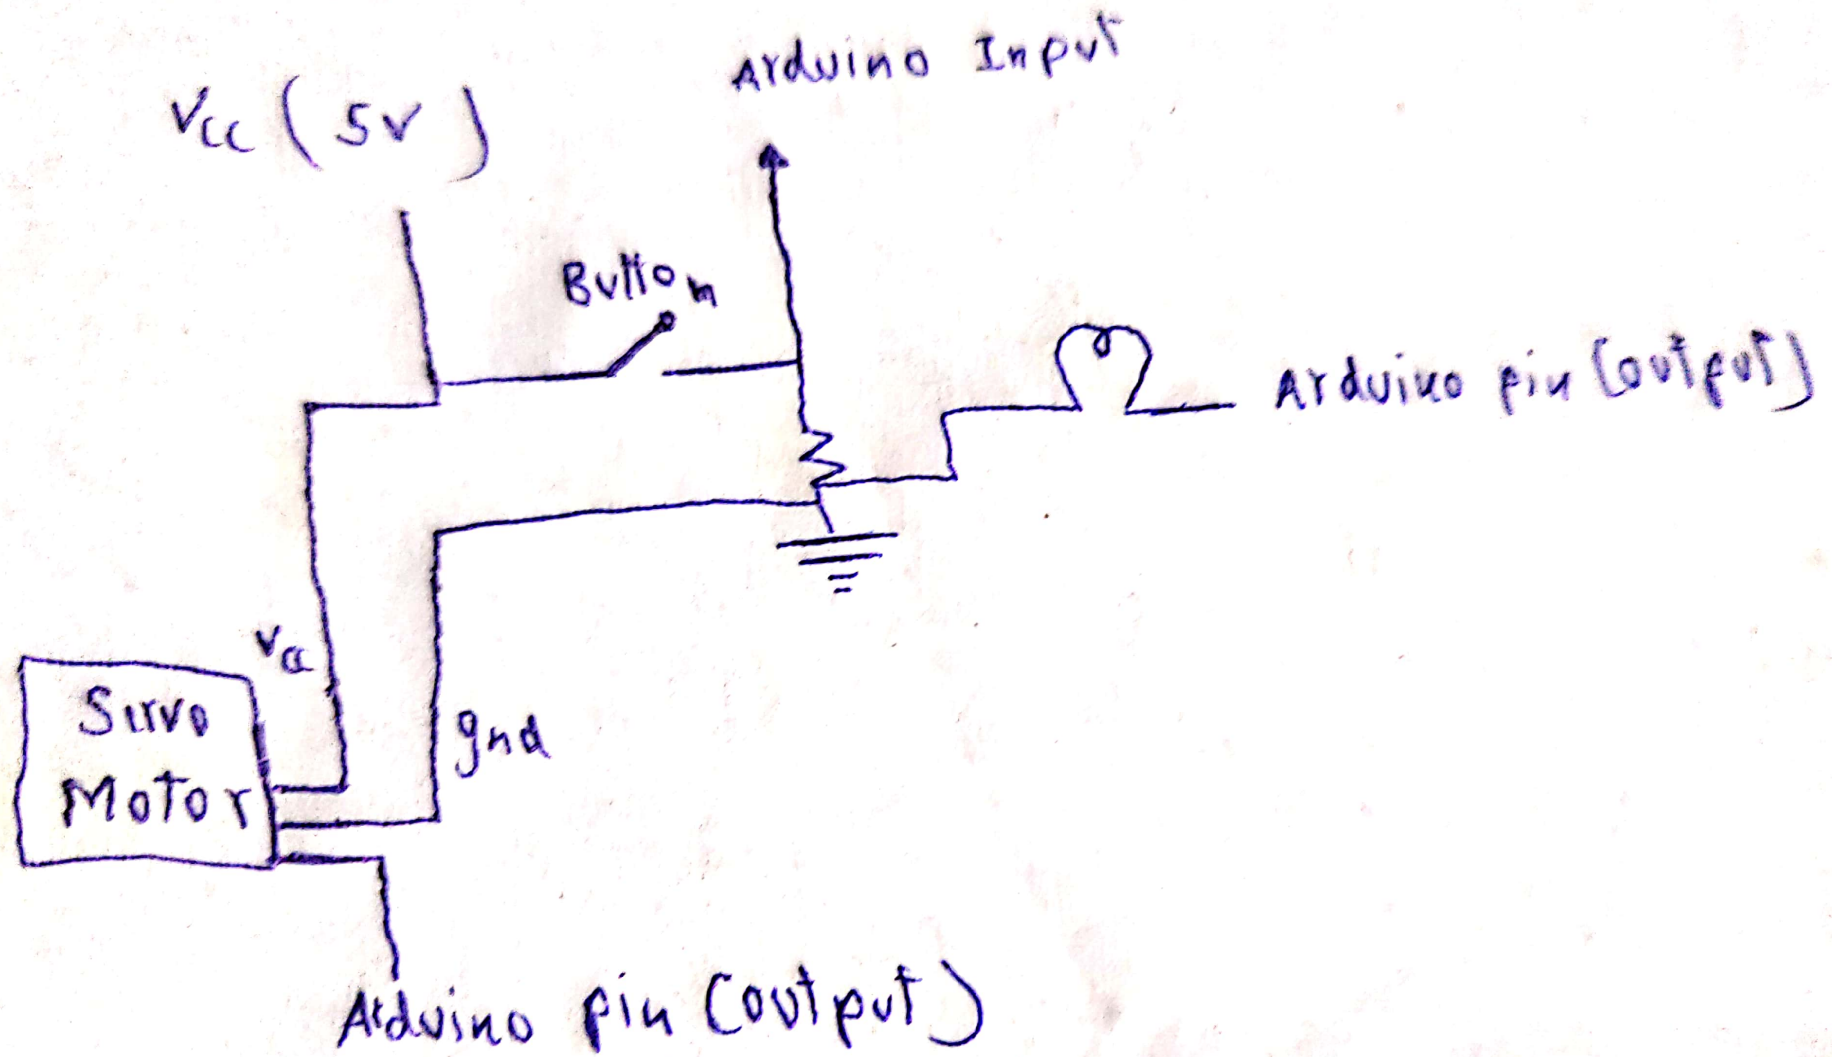 Arduino Input
Vcc (5V)
Button
Arduino pin (output)
Vcc
Servo
Motor
gnd
Arduino pin (output)